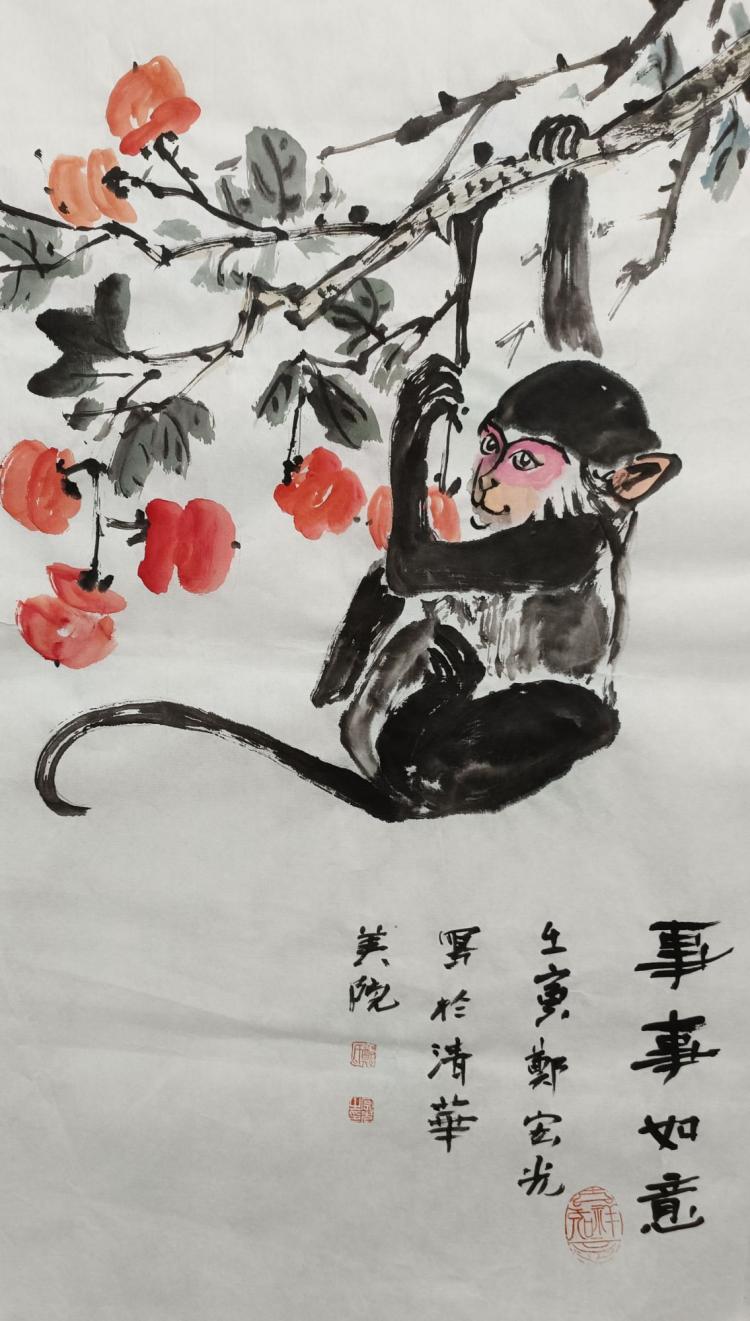 事事如意
壬寅鄭宏光
寫於清華
美院